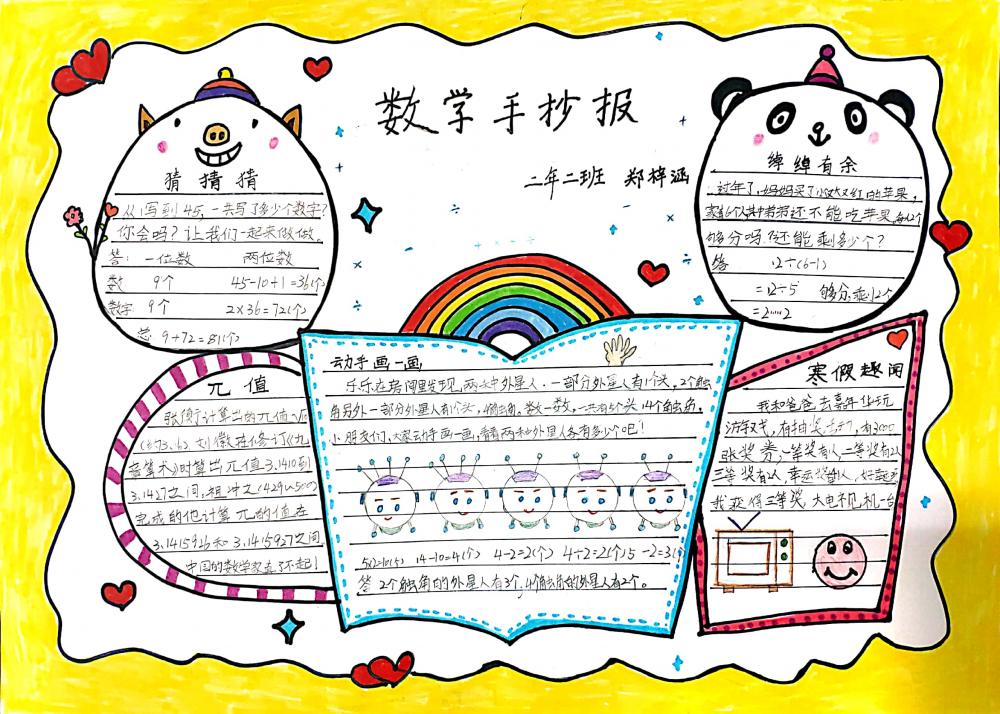 数学手抄报
二年二班 郑梓涵
猜猜猜
从1写到45,一共写了多少个数字?
你会吗?让我们一起来做做。
答: 一位数 两位数
数 9个 45-10+1=36(个)
数字 9个 2×36=72(个)
总 9+72=81(个)
绰绰有余
过年了,妈妈买了12个大又红的苹果,
家有6个人,其中弟弟还不能吃苹果,每人2个
够分吗?还能剩多少个?
答 12÷(6-1)
=12÷5 够分,剩2个
=2……2
π值
张衡计算出的π值
刘徽在修订《九
章算术》时算出π值3.1410到
3.1427之间,祖冲之(429~500)
完成的他计算π的值在
3.1415926和3.1415927之间
中国的数学家真了不起!
动手画一画
乐乐在房间里发现两种外星人,一部分外星人有1个头,2个触
角,另外一部分外星人有1个头,4个触角,数一数,一共有5个头14个触角,
小朋友们,大家动手画一画,看看两种外星人各有多少个吧!
5×2=10(个) 14-10=4(个) 4-2=2(个) 4÷2=2(个) 5-2=3(个)
答 2个触角的外星人有3个,4个触角的外星人有2个。
寒假趣闻
我和爸爸去嘉年华玩
游戏,有抽奖活动,有3000
张奖券,一等奖有1人,二等奖有2人
三等奖有2人,幸运奖
我获得三等奖,大电视机一台